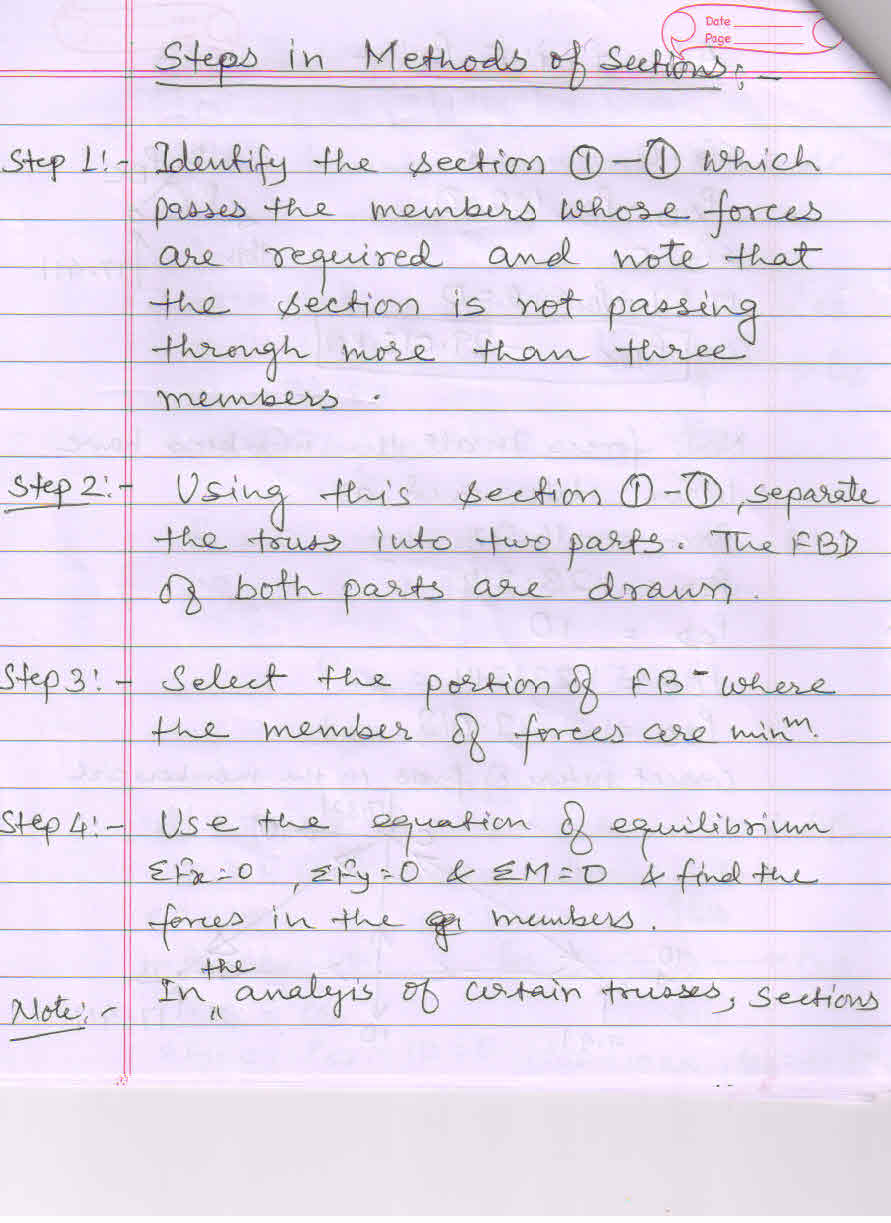 Date
Page
Steps in Methods of Sections:-
Step 1:- Identify the section ①-① which
passes the members whose forces
are required and note that
the section is not passing
through more than three
members.
Step 2:- Using this section ①-①, separate
the truss into two parts. The FBD
of both parts are drawn.
Step 3:- Select the portion of FB- where
the member of forces are minm.
Step 4:- Use the equation of equilibrium
ΣFx=0, ΣFy=0 & ΣM=0 & find the
forces in the members.
Note:- In the analyis of certain trusses, sections